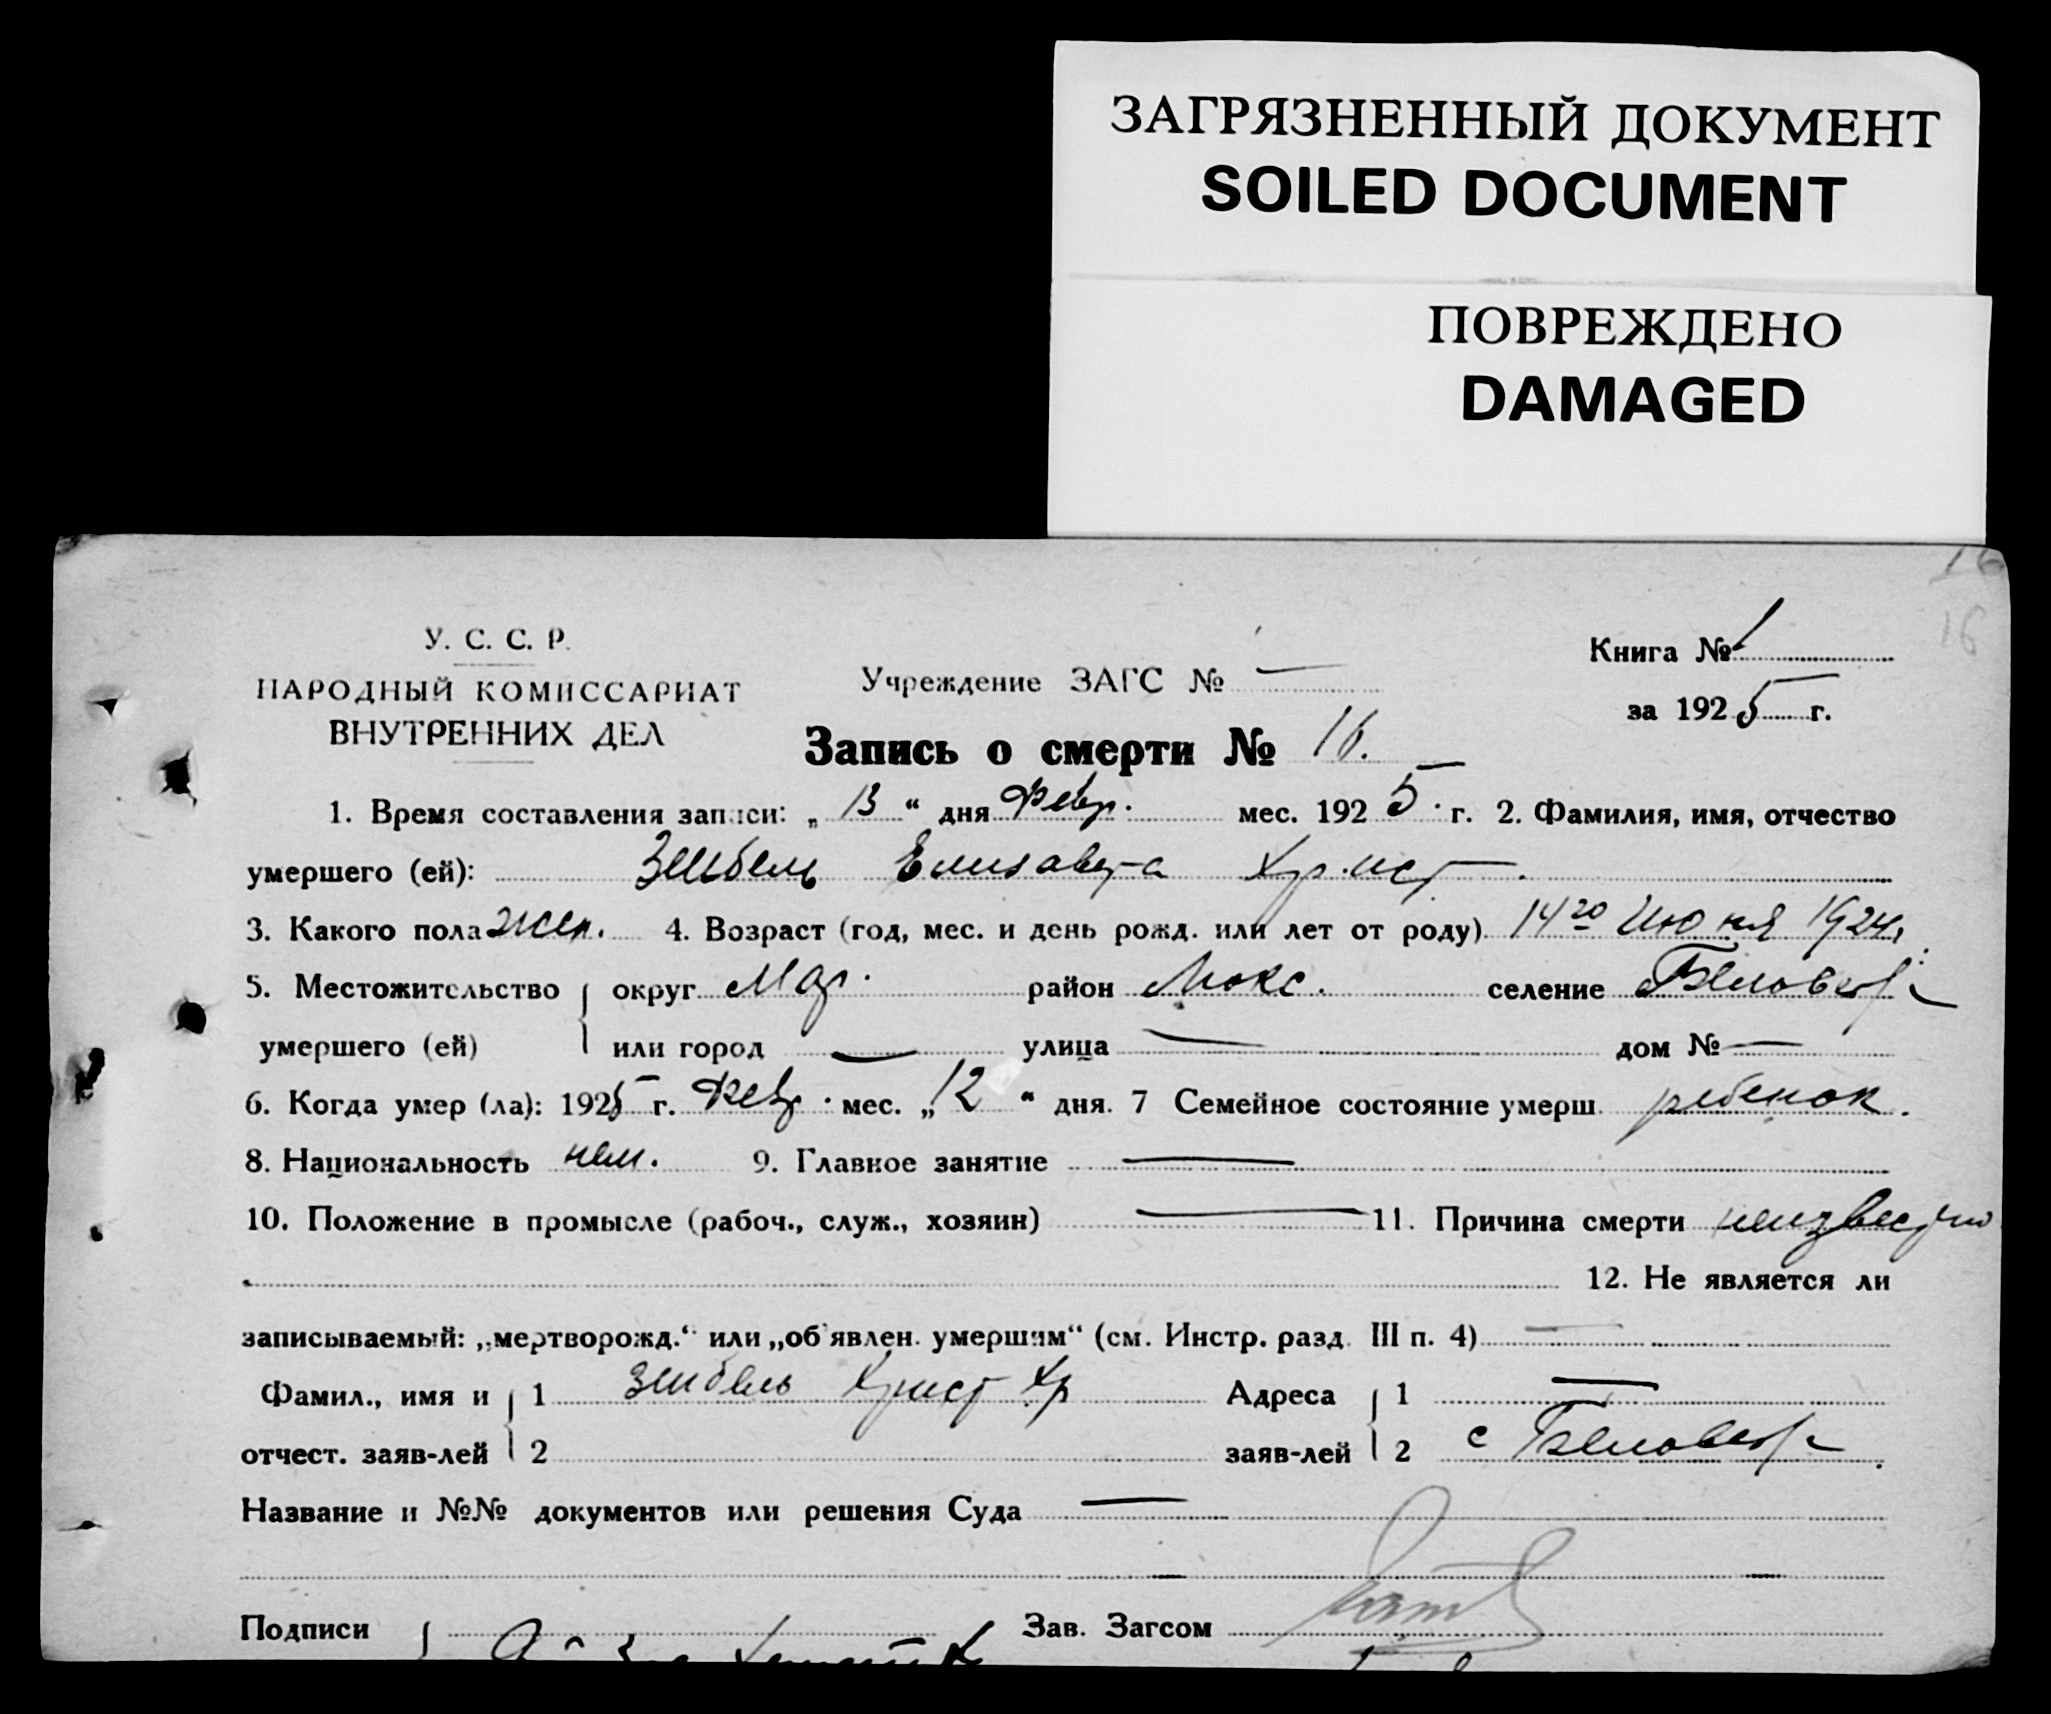 ЗАГРЯЗНЕННЫЙ ДОКУМЕНТ
SOILED DOCUMENT
ПОВРЕЖДЕНО
DAMAGED
16
16
У. С. С. Р.
НАРОДНЫЙ КОМИССАРИАТ
ВНУТРЕННИХ ДЕЛ
Учреждение ЗАГС № —
Книга № 1
за 1925 г.
Запись о смерти № 16.
1. Время составления записи: „ 13 “ дня Февр. мес. 1925 г. 2. Фамилия, имя, отчество
умершего (ей): Зеибель Елизавета Христ.
3. Какого пола жен. 4. Возраст (год, мес. и день рожд. или лет от роду) 14го Июня 1924 г.
5. Местожительство округ Мар. район Люкс. селение Беловеж
умершего (ей) или город — улица — дом № —
6. Когда умер (ла): 1925 г. Февр. мес. „12 “ дня. 7 Семейное состояние умерш. ребенок.
8. Национальность нем. 9. Главное занятие —
10. Положение в промысле (рабоч., служ., хозяин) — 11. Причина смерти неизвестно
12. Не является ли
записываемый: „мертворожд.“ или „об'явлен. умершим“ (см. Инстр. разд. III п. 4) —
Фамил., имя и 1 Зеибель Христ Хр Адреса 1 —
отчест. заяв-лей 2 заяв-лей 2 с Беловеж
Название и №№ документов или решения Суда —
Подписи Зав. Загсом